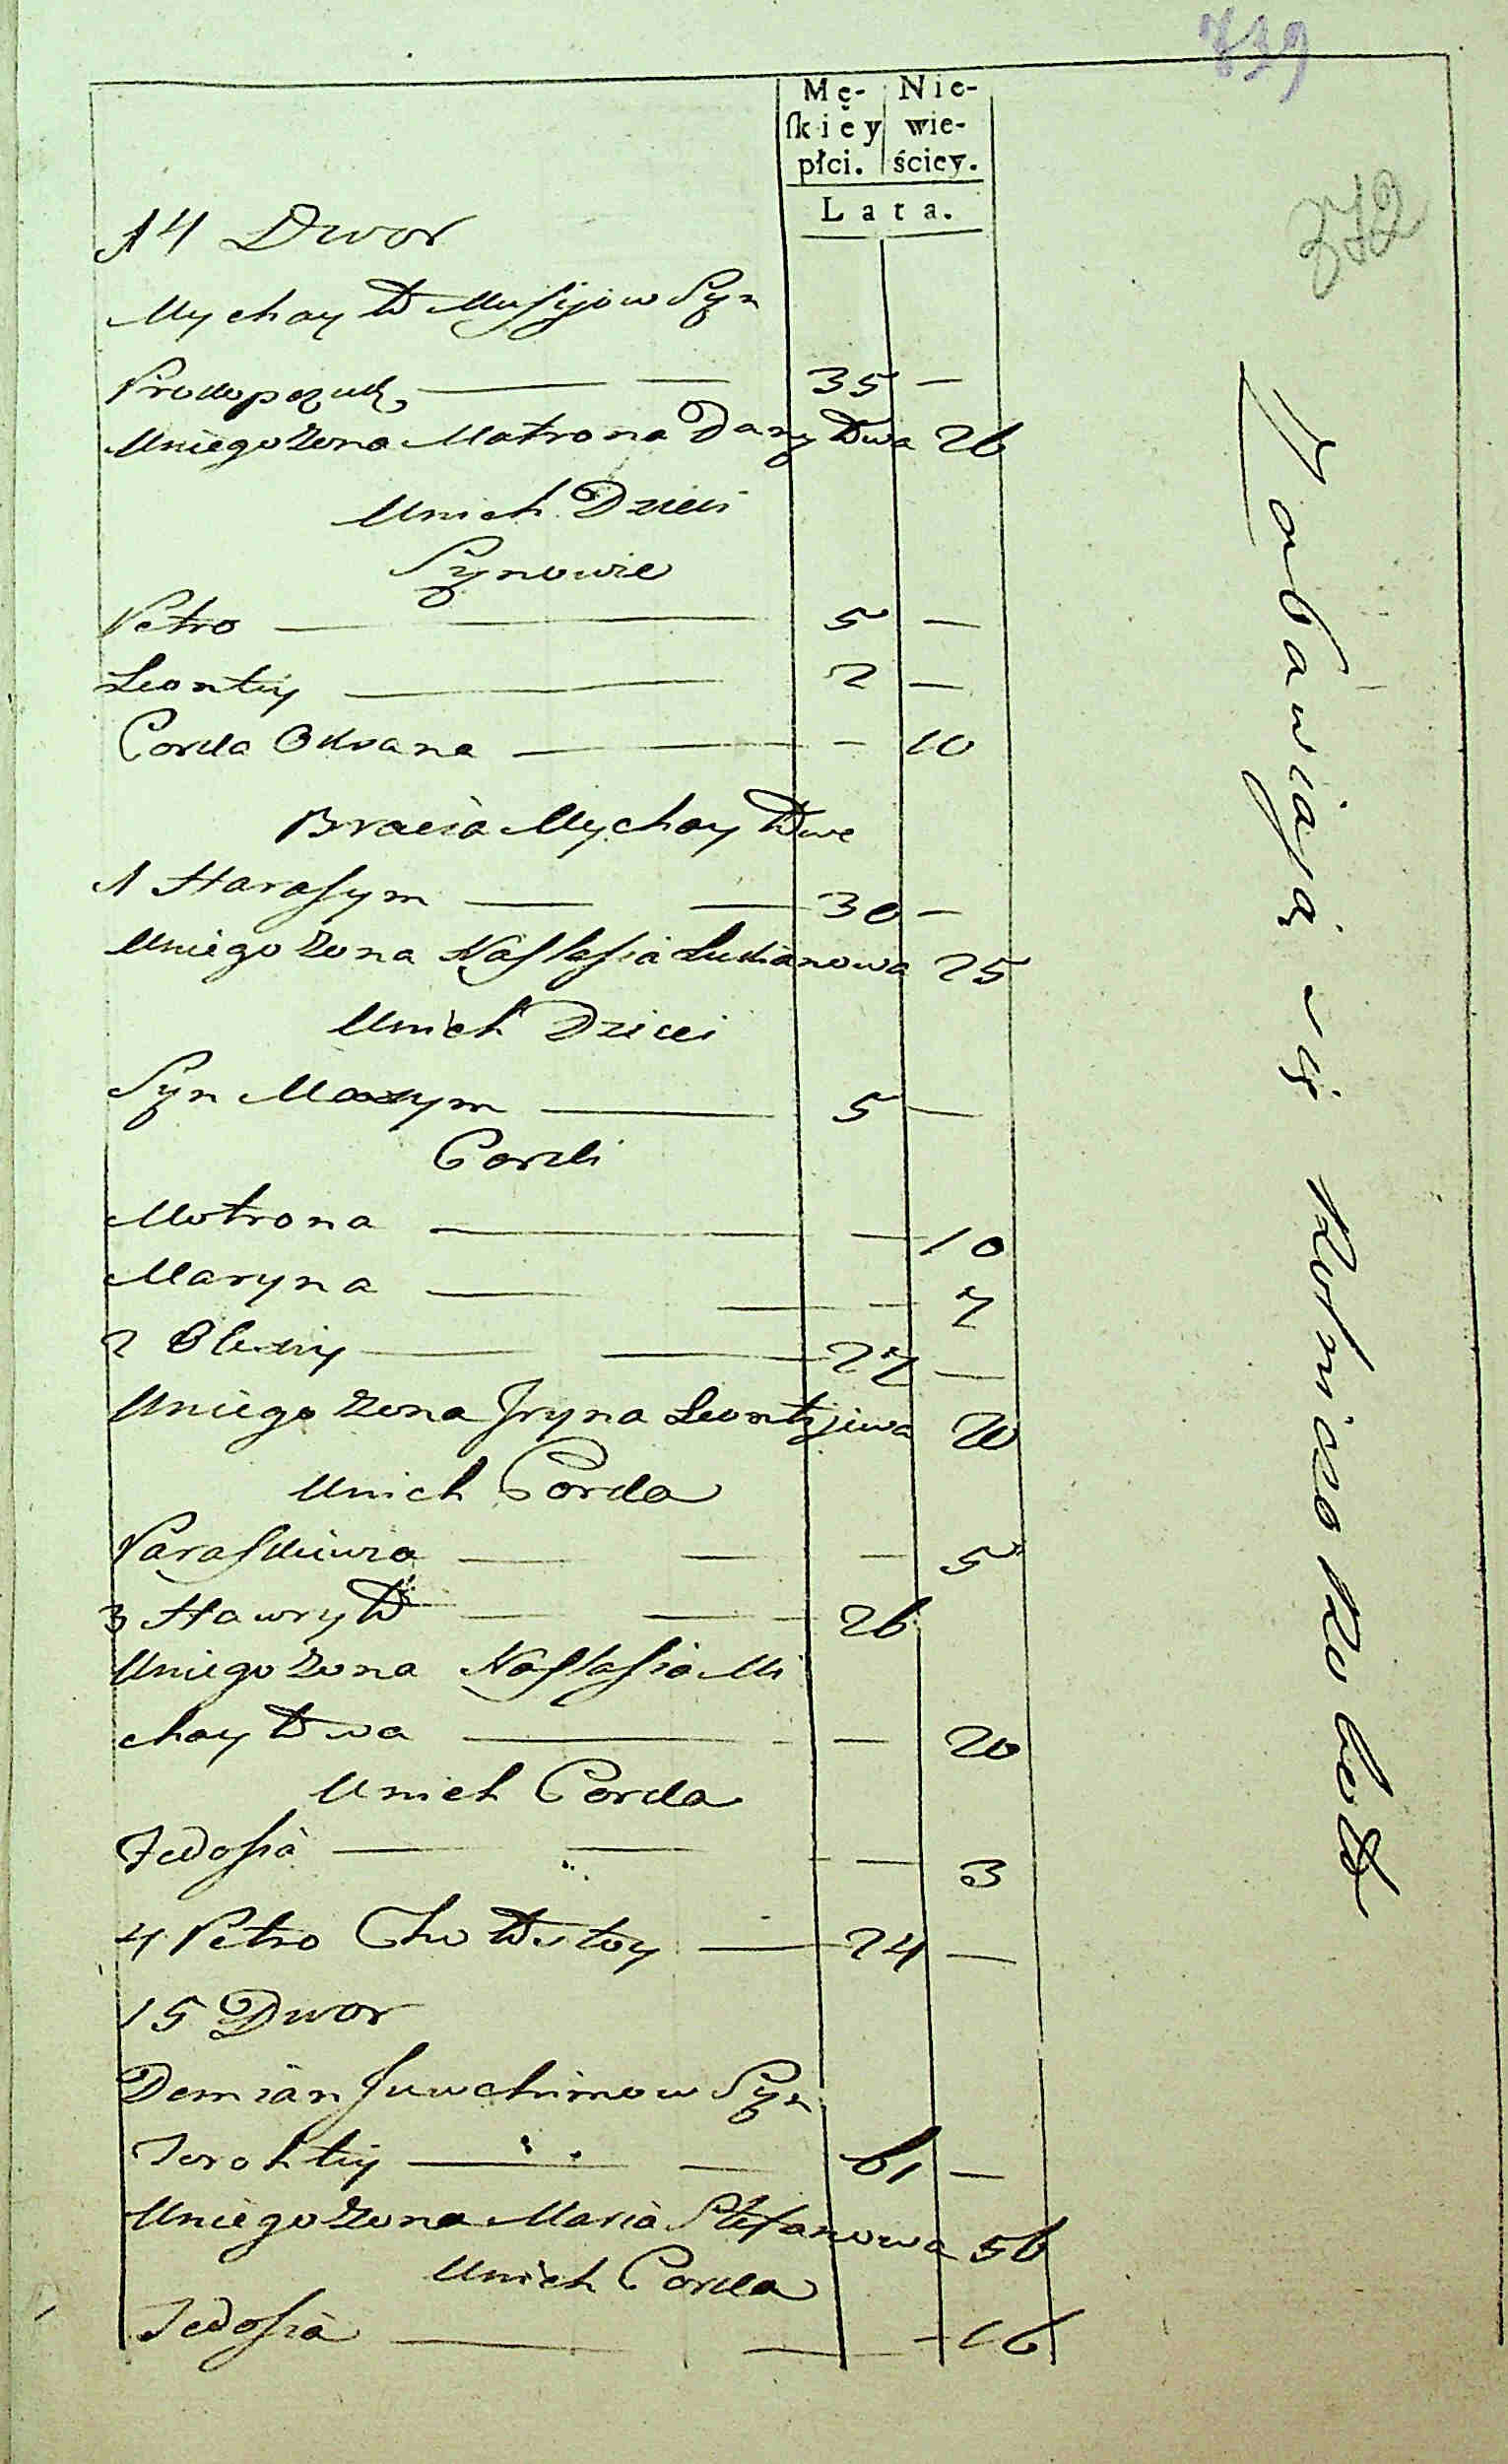 739
372
Mę- Nie-
ſkiey wie-
płci. ściey.
Lata.
14 Dwor
Mychayło Musijow Syn
Prokopczuk — — 35 —
Uniego żona Matrona Daniłowa 26
Unich Dzieci
Synowie
Petro — — 5 —
Leontiy — 2 —
Corka Oksana — — — 10
Bracia Mychayłwe
1 Harasym — — 30 —
Uniego żona Nastasia Lukianowa 25
Unich Dzieci
Syn Maxym — 5 —
Corki
Motrona — — 10
Maryna — — — 7
2 Olexiy — — 27 —
Uniego żona Jryna Leontyiewa 20
Unich Corka
Paraskiewia — — — 5
3 Hawryło — — 26
Uniego żona Nastasia Mi
chayłowa — — 20
Unich Corka
Fedosia — — — 3
4 Petro Chołostoy — 24 —
15 Dwor
Demian Juwchimow Syn
— — 61 —
Uniego żona Maria Stefanowa 56
Unich Corka
Fedosia — — — 16
Zabawiaią się Rolnictwem